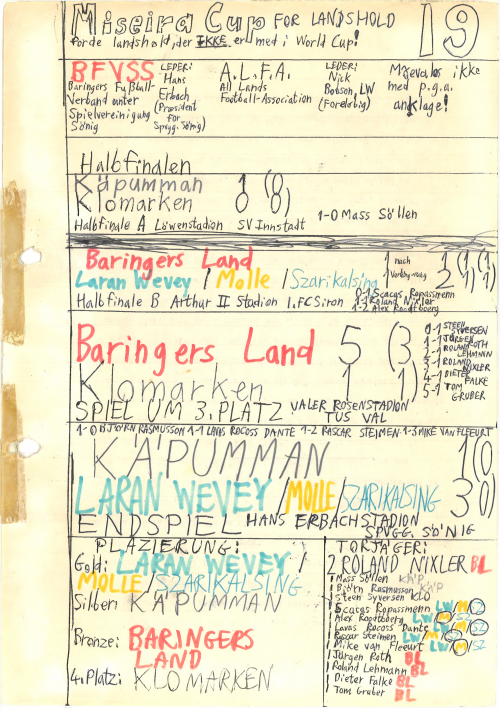 Miseira Cup FOR LANDSHOLD 19
forde landshold, der IKKE er med i World Cup!
BFVSS
Baringers Fußball-
Verband unter
Spielvereinigung
Sönig
(LEDER:
Hans
Erbach
(Præsident
for
Spvgg. Sönig)
A.L.F.A.
All Lands
Football-Association
LEDER:
Nick
Bobson, LW
(Foreløbig)
ikke
med p.g.a.
anklage!
Halbfinalen
Käpumman 1 (0
Klomarken 0 0)
Halbfinale A Löwenstadion SV Innstadt 1-0 Mass Söllen
Baringers Land 1 nach 1 (1) (1
Laran Wevey / Molle / Szarikalsing 1 2 1) 1)
Halbfinale B Arthur II Stadion 1. FC Siron
0-1 Scacgs Ropassmenn
1-1 Roland Nixler
1-2 Alex Rondtboerg
Baringers Land 5 (3
Klomarken 1 1)
SPIEL UM 3. PLATZ VALER ROSENSTADION
TUS VAL
0-1 STEEN SYVERSEN
1-1 JÜRGEN ROTH
2-1 ROLAND LEHMANN
3-1 ROLAND NIXLER
4-1 DIETER FALKE
5-1 TOM GRUBER
1-0 BJÖRN RASMUSSON 1-1 LAVAS ROCOSS DANTE 1-2 RASCAR STEIMEN 1-3 MIKE VAN FLEEURT
KÄPUMMAN 1 (0
LARAN WEVEY / MOLLE / SZARIKALSING 3 0)
ENDSPIEL HANS ERBACHSTADION
SPVGG. SÖNIG
PLAZIERUNG:
Gold: LARAN WEVEY /
MOLLE / SZARIKALSING
Silber: KÄPUMMAN
Bronze: BARINGERS
LAND
4. Platz: KLOMARKEN
TORJÄGER:
2 ROLAND NIXLER BL
1 Mass Söllen KÄP
Björn Rasmusson KÄP
Steen Syversen KLO
Scacgs Ropassmenn LW/M/SZ
Alex Rondtboerg LW/M/SZ
Lavas Rocoss Dante LW/M/SZ
Rascar Steimen LW/M/SZ
Mike van Fleeurt LW/M/SZ
Jürgen Roth BL
Roland Lehmann BL
Dieter Falke BL
Tom Gruber BL